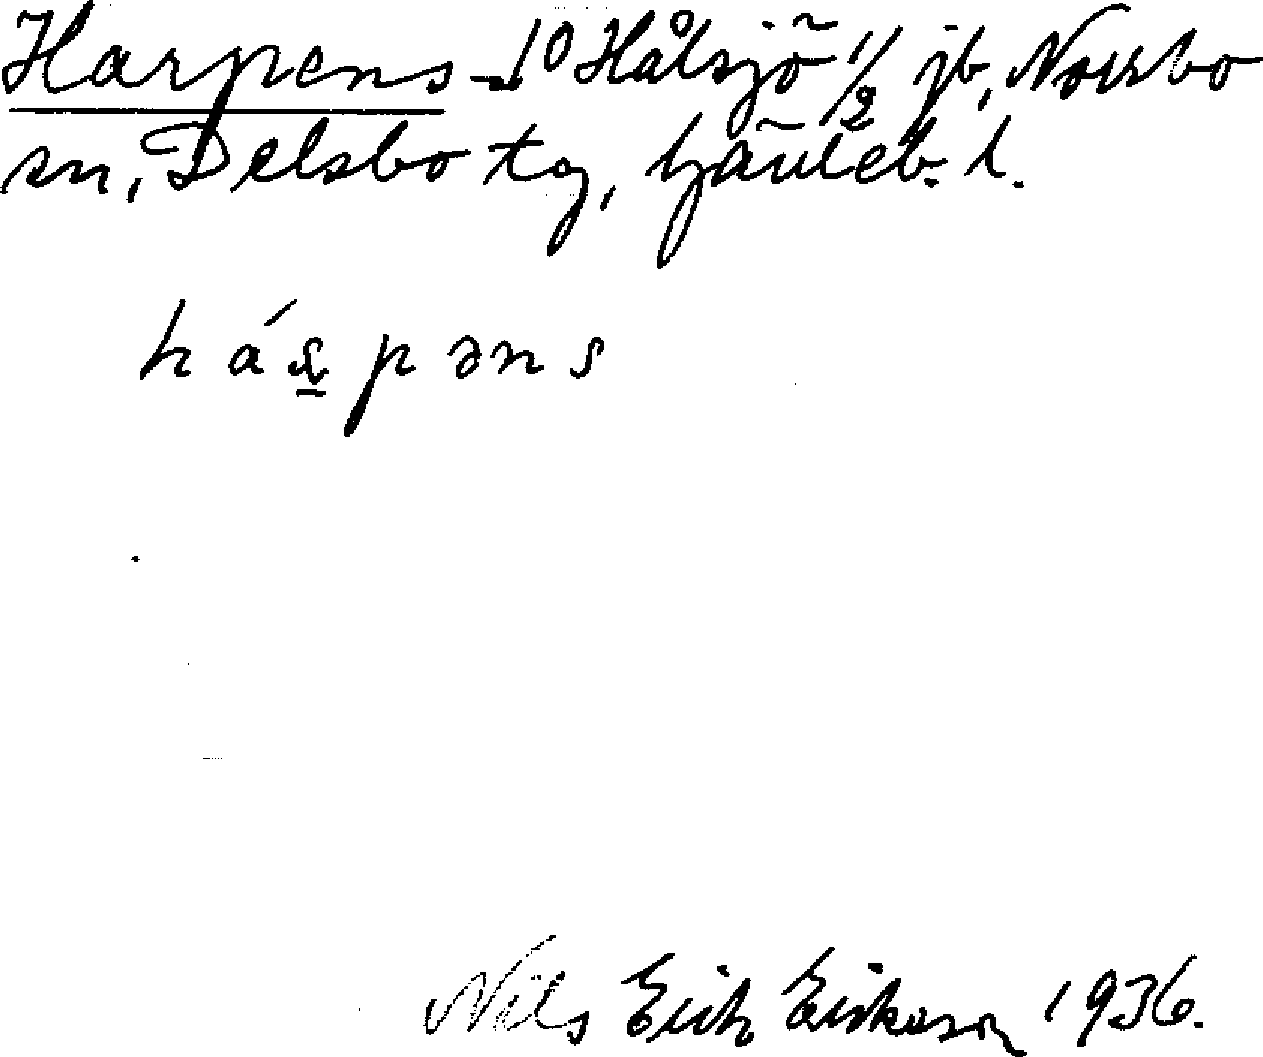 Harpens – i Hålsjö 1/2 jb, Norrbo
sn, Delsbo tg, Gävleb. l.
há p ə n s
Nils Erik Eriksson 1936.